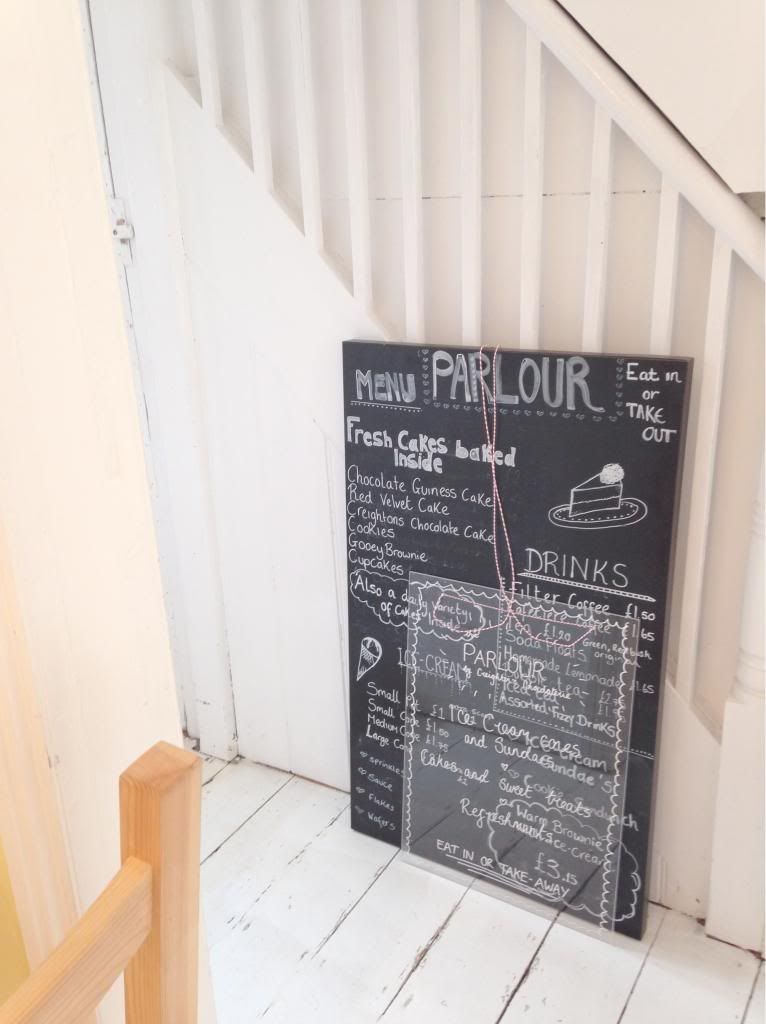 MENU PARLOUR
Eat in
or
TAKE
OUT
Fresh Cakes baked
Inside
Chocolate Guiness Cake
Red Velvet Cake
Creightons Chocolate Cake
Cookies
Gooey Brownie
Cupcakes
Also a daily variety
of Cakes inside
DRINKS
Filter Coffee £1.50
Cafetiere Coffee £1.65
Tea £1.20 Green, Redbush
original
Soda Floats
Homemade Lemonade £1.65
Iced tea
Assorted Fizzy Drinks
ICE-CREAM
Small Pot £1
Small Cone £1.50
Medium Cone £1.75
Large Cone
Sprinkles
Sauce
Flakes
Wafers
Ice Cream
Sundae's
Cookie Sandwich
Warm Brownie
Ice-Cream
£3.15
PARLOUR
by Creighton's Chocolaterie
Ice Cream cones
and Sundaes
Cakes and Sweet treats
Refreshments
EAT IN OR TAKE-AWAY